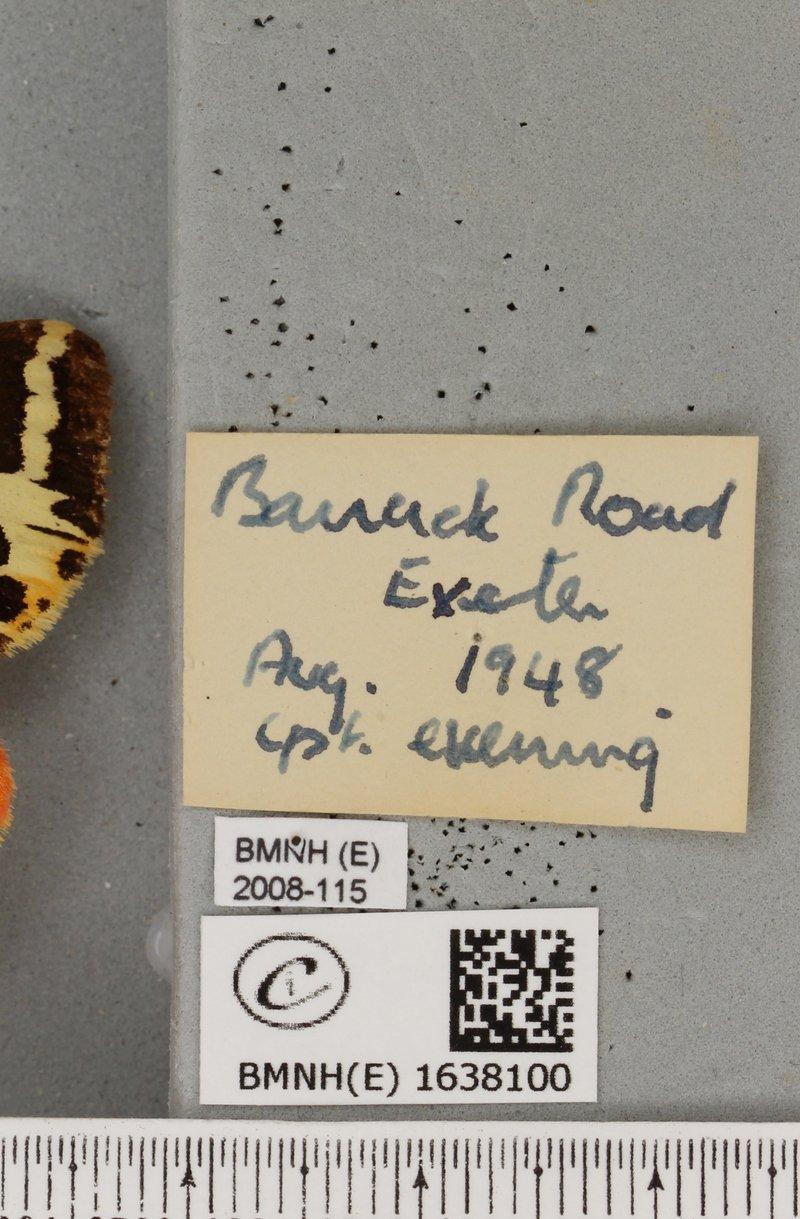 Barrack Road
Exeter
Aug. 1948
cpt. evening
BMNH (E)
2008-115
C
BMNH(E) 1638100